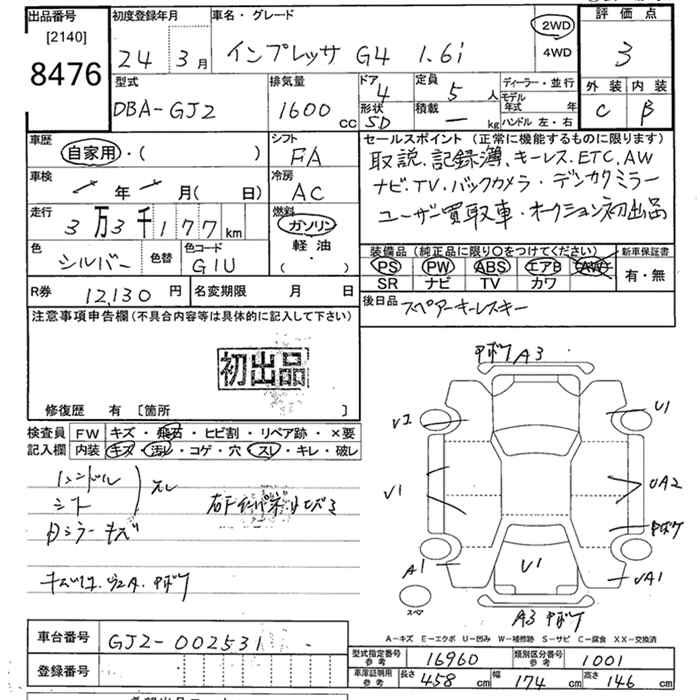 出品番号
[2140]
8476
初度登録年月
24 3月
車名・グレード
インプレッサ G4 1.6i
2WD
4WD
評価点
3
外装 内装
C B
型式
DBA-GJ2
排気量
1600 CC
ドア 4
形状 SD
定員 5 人
積載 — kg
ディーラー・並行
モデル年式 年
ハンドル 左・右
車歴
自家用・( )
シフト
FA
セールスポイント (正常に機能するものに限ります)
取説.記録簿.キーレス.ETC.AW
ナビ.TV.バックカメラ・デンカクミラー
ユーザー買取車・オークション初出品
車検
年 月( 日)
冷房
AC
走行
3万3千177km
燃料
ガソリン
軽油
( )
色
シルバー
色替
色コード
G1U
装備品 (純正品に限り○をつけてください)
PS PW ABS エアB AW
SR ナビ TV カワ
新車保証書
有・無
R券 12,130 円
名変期限 月 日
後日品
スペアーキーレスキー
注意事項申告欄(不具合内容等は具体的に記入して下さい)
初出品
修復歴 有 [箇所 ]
検査員記入欄
FW キズ・飛石・ヒビ割・リペア跡・×要
内装 キズ・汚レ・コゲ・穴・スレ・キレ・破レ
ハンドル
シフト
スレ
内ミラーキズ
A3
U1
V1
UA2
A1
U1
A3
スペア
A-キズ E-エクボ U-凹み W-補修跡 S-サビ C-腐食 XX-交換済
車台番号
GJ2-002531
登録番号
型式指定番号 参考
16960
類別区分番号 参考
1001
車庫証明用 参考
長さ 458 cm
幅 174 cm
高さ 146 cm